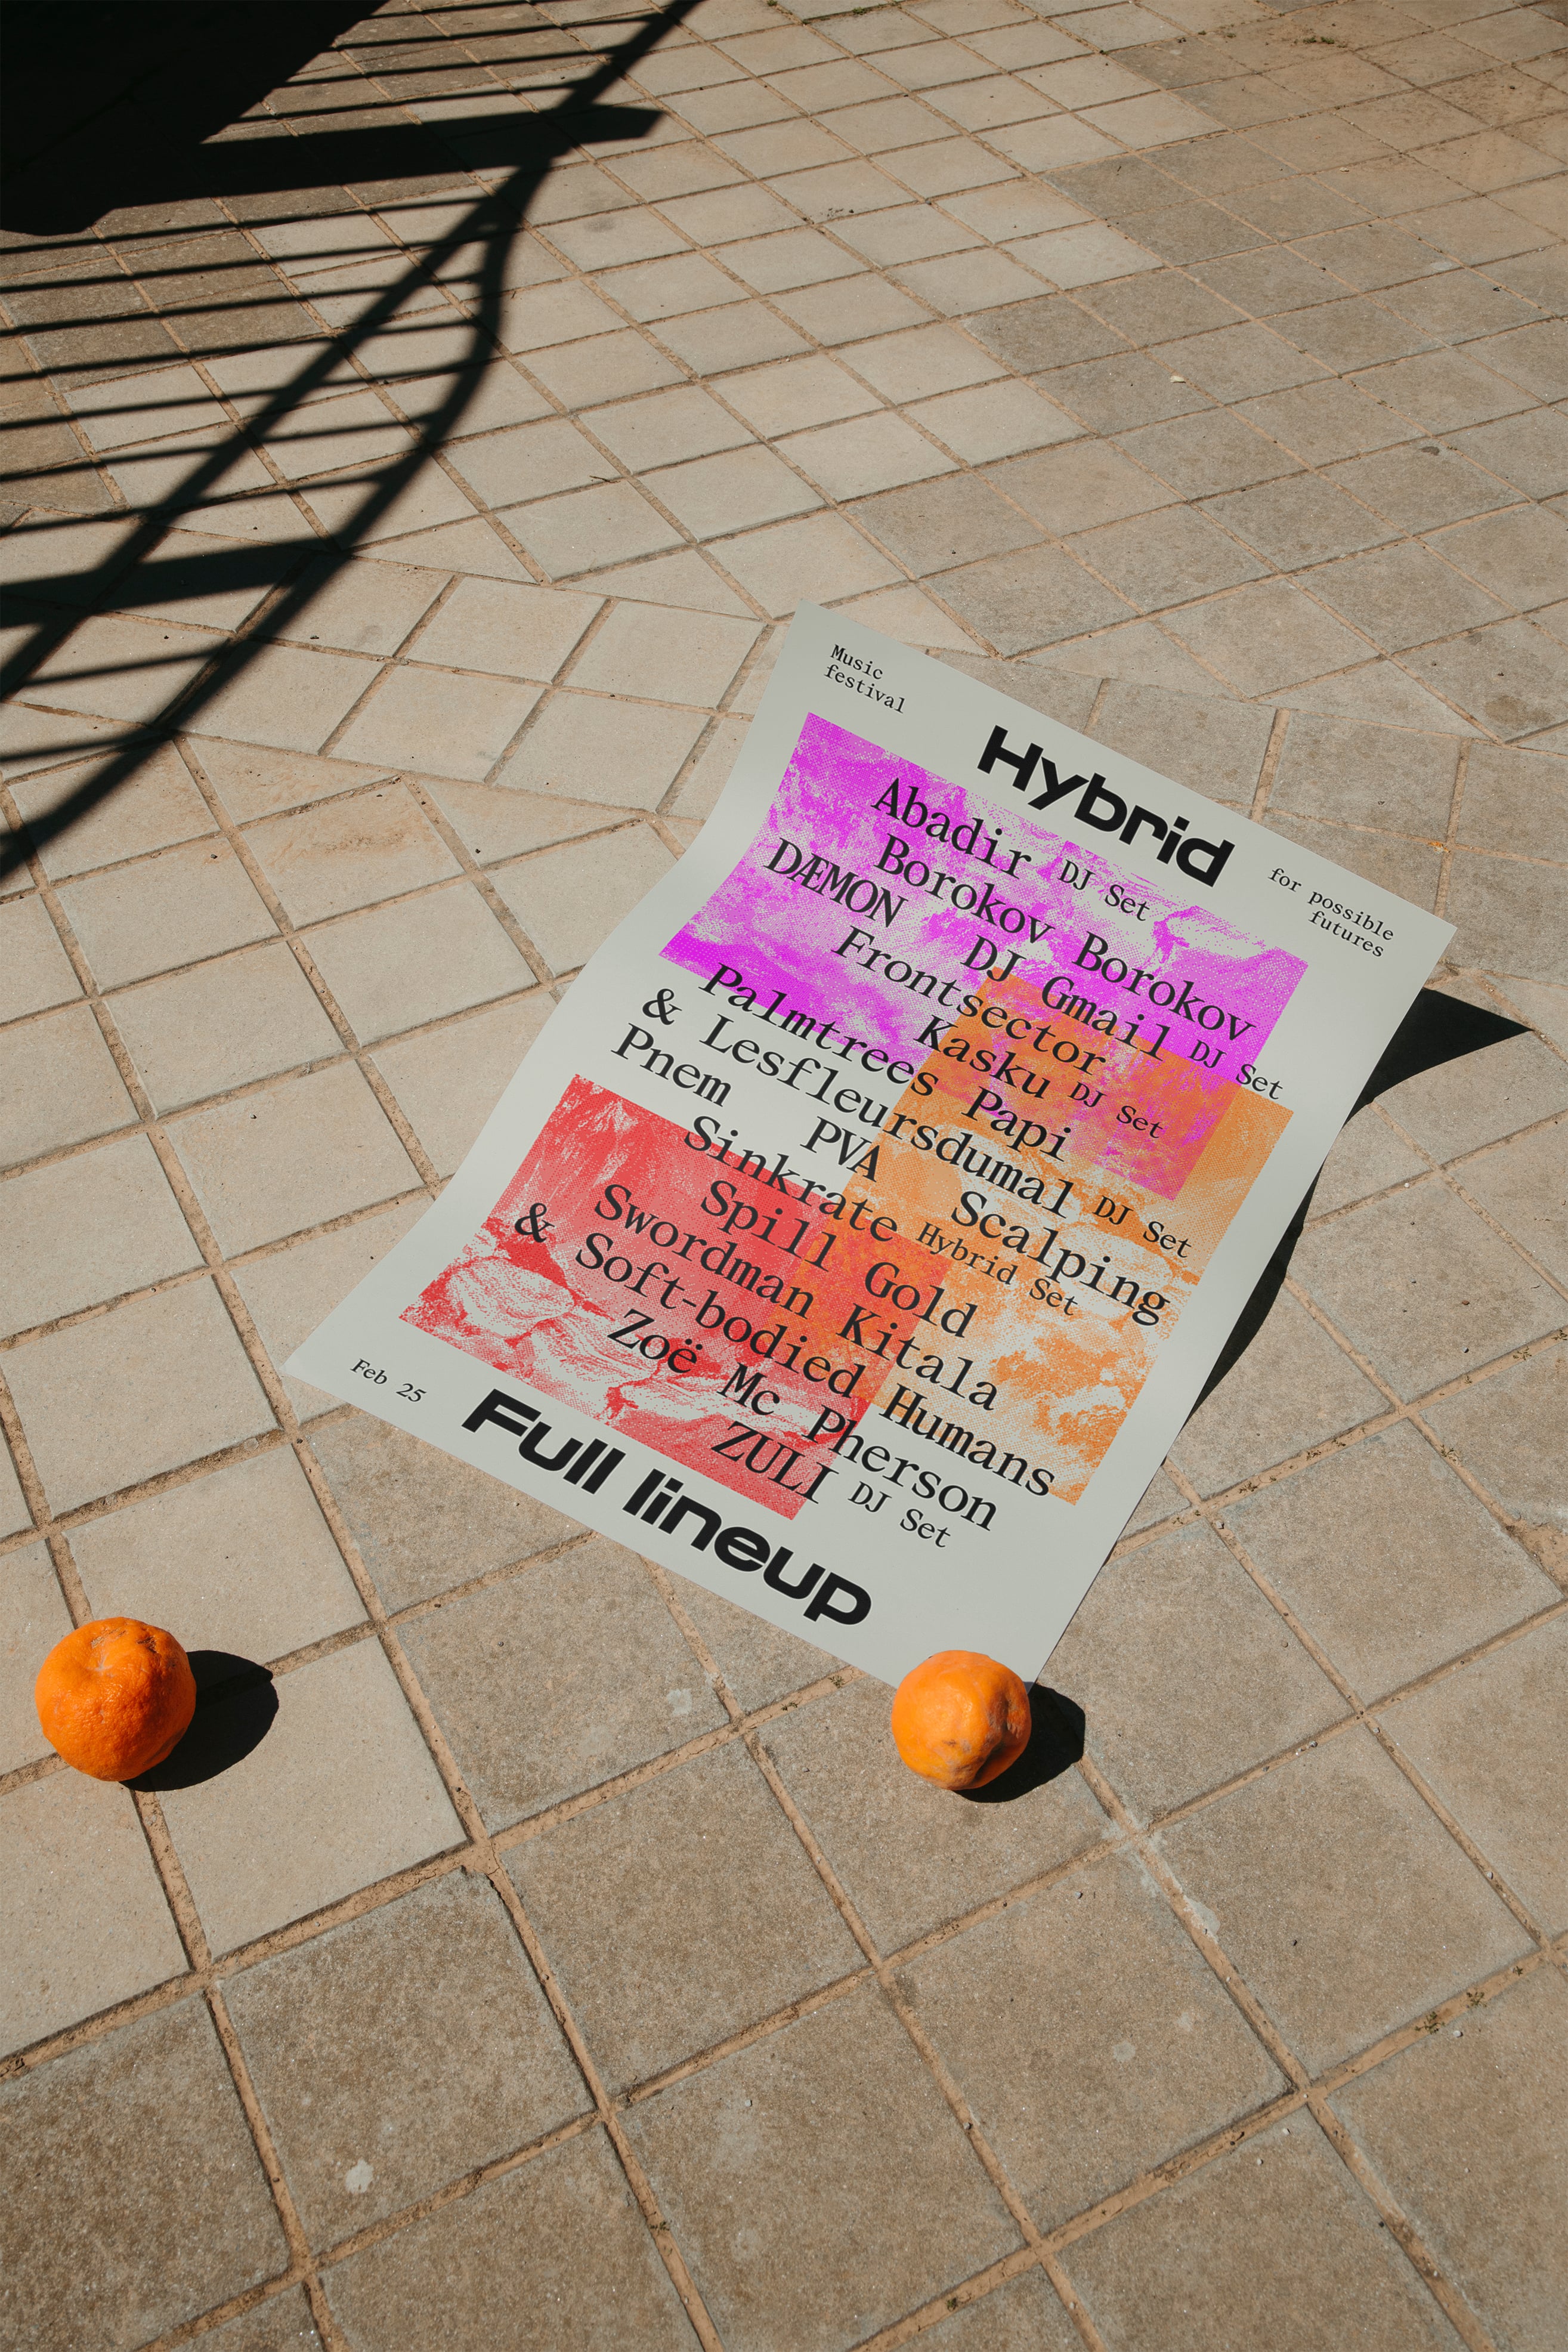 Music
festival
Hybrid
for possible
futures
Abadir DJ Set
Borokov Borokov
DÆMON DJ Gmail DJ Set
Frontsector
Kasku DJ Set
Palmtrees Papi
& Lesfleursdumal DJ Set
Pnem PVA Scalping
Sinkrate Hybrid Set
Spill Gold
Swordman Kitala
& Soft-bodied Humans
Zoë Mc Pherson
ZULI DJ Set
Feb 25
Full lineup